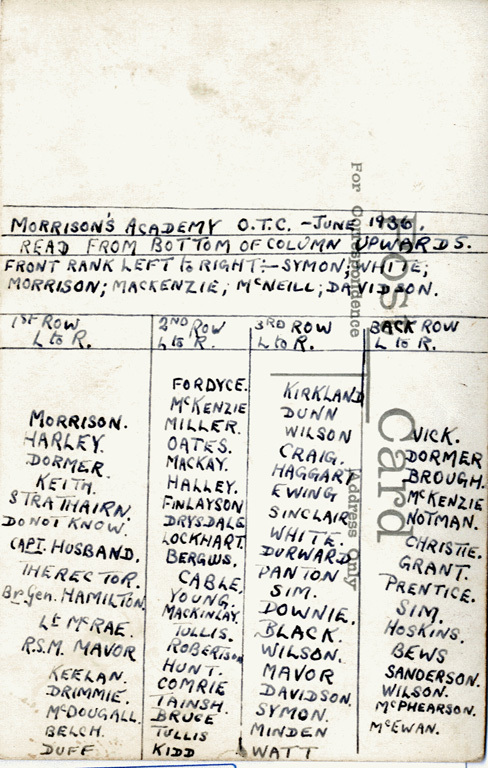 MORRISON'S ACADEMY O.T.C. - JUNE 1936.
READ FROM BOTTOM OF COLUMN UPWARDS.
FRONT RANK LEFT to RIGHT:- SYMON; WHITE;
MORRISON; MACKENZIE; McNEILL; DAVIDSON.
1ST ROW
L to R.
MORRISON.
HARLEY.
DORMER.
KEITH.
STRATHAIRN.
DO NOT KNOW.
CAPT. HUSBAND.
THE RECTOR.
Br. Gen. HAMILTON.
Lt McRAE.
R.S.M. MAVOR
KEELAN.
DRIMMIE.
McDOUGALL.
BELCH.
DUFF
2ND ROW
L to R.
FORDYCE.
McKENZIE
MILLER.
OATES.
MACKAY.
HALLEY.
FINLAYSON
DRYSDALE
LOCKHART.
BERGIUS.
CABLE.
YOUNG.
MACKINLAY.
TULLIS.
ROBERTSON
HUNT.
COMRIE
TAINSH.
BRUCE
TULLIS
KIDD
3RD ROW
L to R.
KIRKLAND
DUNN
WILSON
CRAIG.
HAGGART
EWING
SINCLAIR
WHITE.
DURWARD
PANTON
SIM.
DOWNIE.
BLACK.
WILSON.
MAVOR
DAVIDSON.
SYMON.
MINDEN
WATT
BACK ROW
L to R.
VICK.
DORMER
BROUGH.
McKENZIE
NOTMAN.
CHRISTIE.
GRANT.
PRENTICE.
SIM.
HOSKINS.
BEWS
SANDERSON.
WILSON.
McPHEARSON.
McEWAN.
Post Card
For Correspondence
Address Only